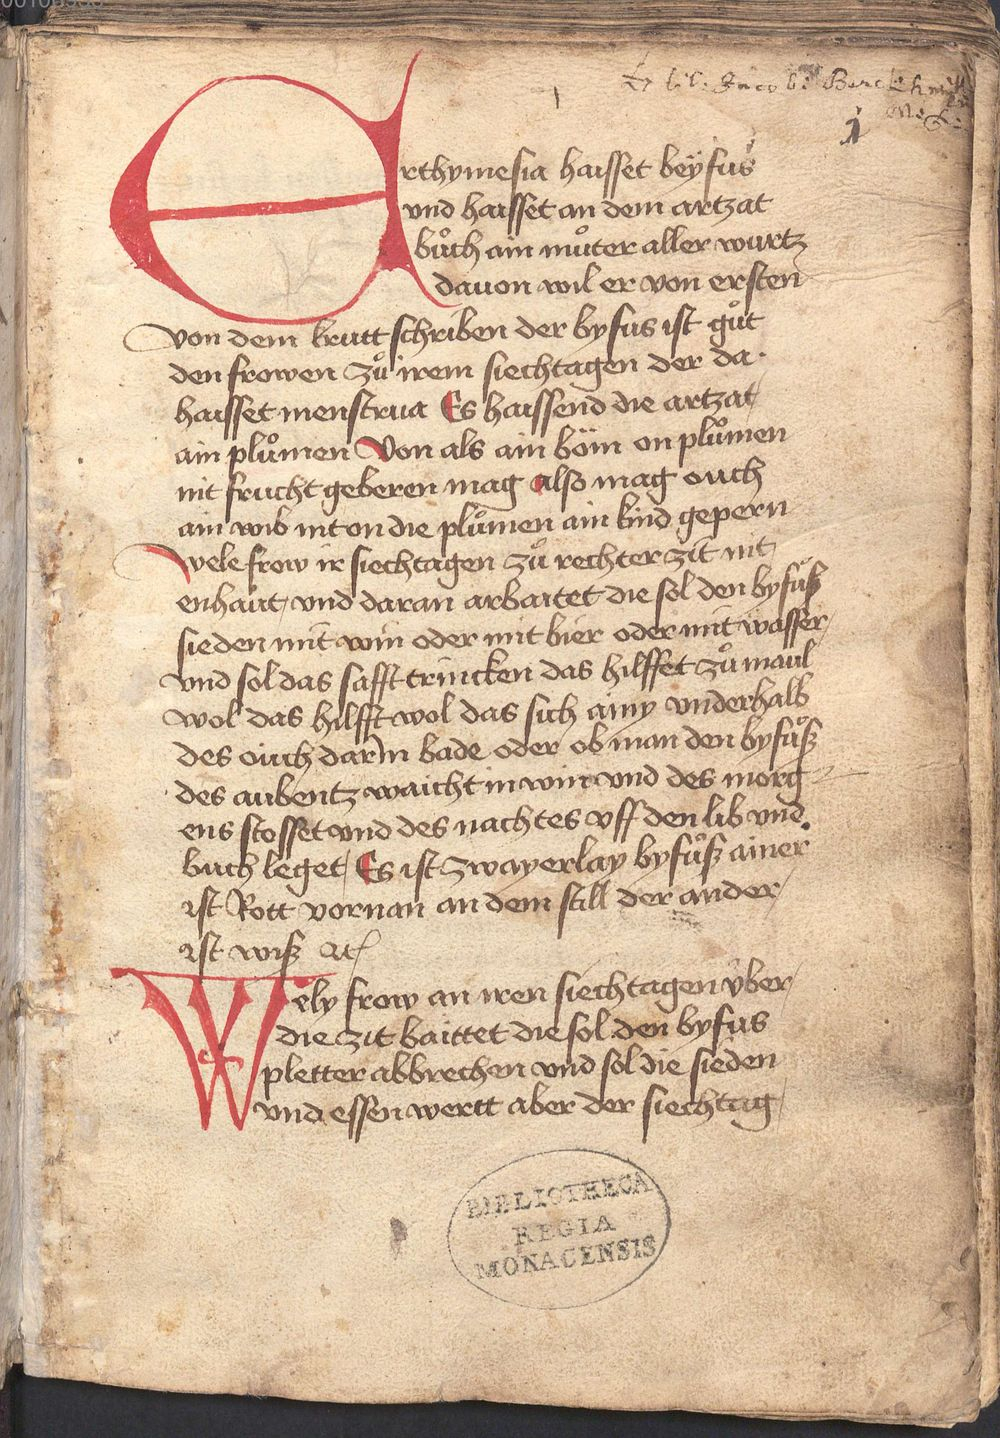 Ex lib: Jacobi
1
Arthymesia haisset beÿfus
vnd haisset an dem artzat
bůch ain můter aller wurtz
dauon wil er von ersten
von dem krutt schriben der byfus ist gůt
den frowen zů irem siechtagen der da
haisset menstrua Es haissend die artzat
ain plůmen Von als ain böm on plůmen
nit frucht geberen mag also mag ouch
ain wib nit on die plůmen ain kind gepern
Wele frow ir siechtagen zů rechter zit nit
enhaut vnd daran arbaitet die sol den byfůß
sieden mit win oder mit bier oder mit wasser
vnd sol das safft trincken das hilffet zů maul
wol das hilfft wol das sich ainy vnderhalb
des ouch darin bade oder ob man den byfůß
des aubentz waicht in win vnd des morg
ens stosset vnd des nachtes vff den lib vnd
buch leget Es ist zwayerlay byfůß ainer
ist Rott vornan an dem still der ander
ist wiß etc
Wely frow an iren siechtagen über
die zit baittet die sol den byfus
pletter abbrechen vnd sol die sieden
vnd essen wertt aber der siechtag
BIBLIOTHECA
REGIA
MONACENSIS